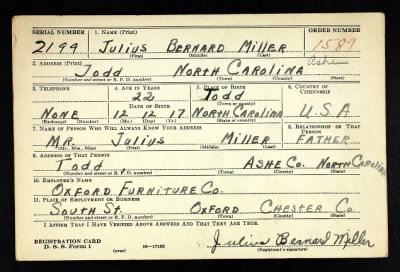 SERIAL NUMBER 1. NAME (Print) ORDER NUMBER
2199 Julius Bernard Miller 1589
(First) (Middle) (Last)
2. ADDRESS (Print) Ashe
Todd North Carolina
(Number and street or R. F. D. number) (Town) (County) (State)
3. TELEPHONE 4. AGE IN YEARS 5. PLACE OF BIRTH 6. COUNTRY OF CITIZENSHIP
22 Todd
DATE OF BIRTH (Town or county)
None 12 12 17 North Carolina U.S.A
(Exchange) (Number) (Mo.) (Day) (Yr.) (State or country)
7. NAME OF PERSON WHO WILL ALWAYS KNOW YOUR ADDRESS 8. RELATIONSHIP OF THAT PERSON
Mr Julius Miller Father
(Mr., Mrs., Miss) (First) (Middle) (Last)
9. ADDRESS OF THAT PERSON
Todd Ashe Co. North Carolina
(Number and street or R. F. D. number) (Town) (County) (State)
10. EMPLOYER'S NAME
Oxford Furniture Co.
11. PLACE OF EMPLOYMENT OR BUSINESS
South St Oxford Chester Co
(Number and street or R. F. D. number) (Town) (County) (State)
I AFFIRM THAT I HAVE VERIFIED ABOVE ANSWERS AND THAT THEY ARE TRUE.
REGISTRATION CARD
D. S. S. Form 1 (over) 16—17105 Julius Bernard Miller
(Registrant's signature)